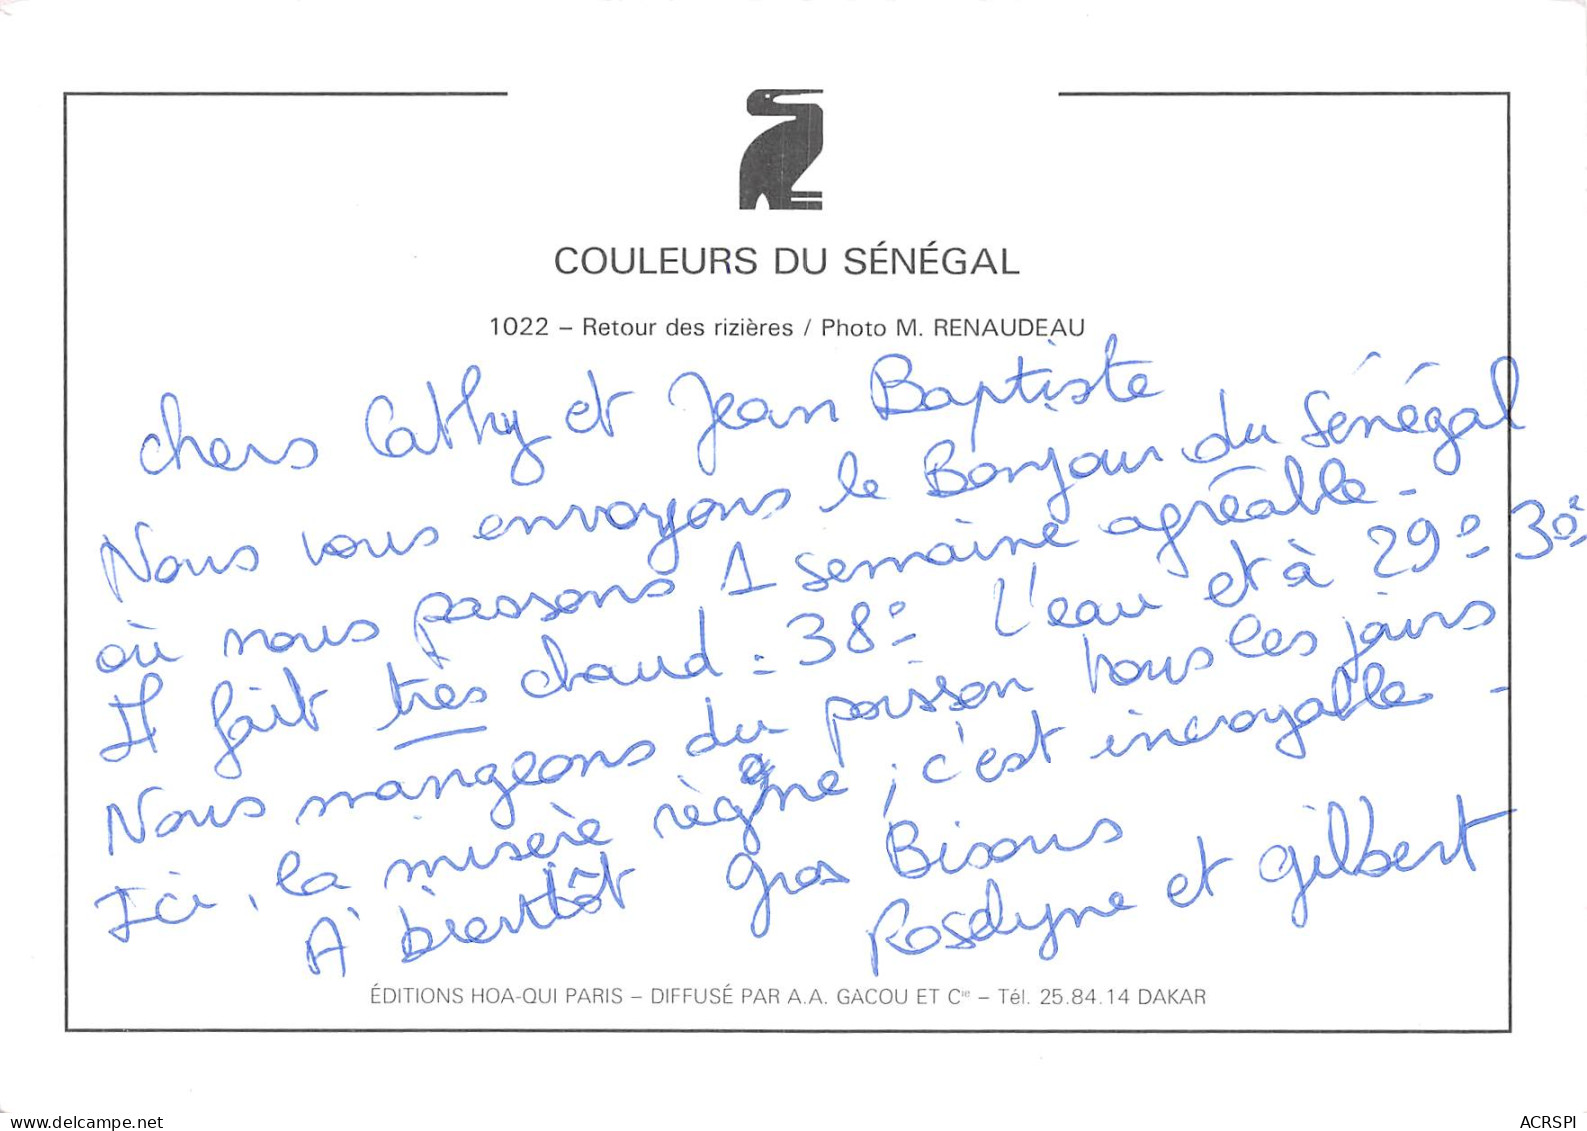 COULEURS DU SÉNÉGAL
1022 – Retour des rizières / Photo M. RENAUDEAU
chers Cathy et Jean Baptiste
Nous vous envoyons le Bonjour du Sénégal
où nous passons 1 semaine agréable -
Il fait très chaud = 38° L'eau et à 29° 30°
Nous mangeons du poisson tous les jours
Ici, la misère règne, c'est incroyable -
A bientôt gros Bisous
Roselyne et gilbert
ÉDITIONS HOA-QUI PARIS – DIFFUSÉ PAR A.A. GACOU ET Cie – Tél. 25.84.14 DAKAR
www.delcampe.net
ACRSPI